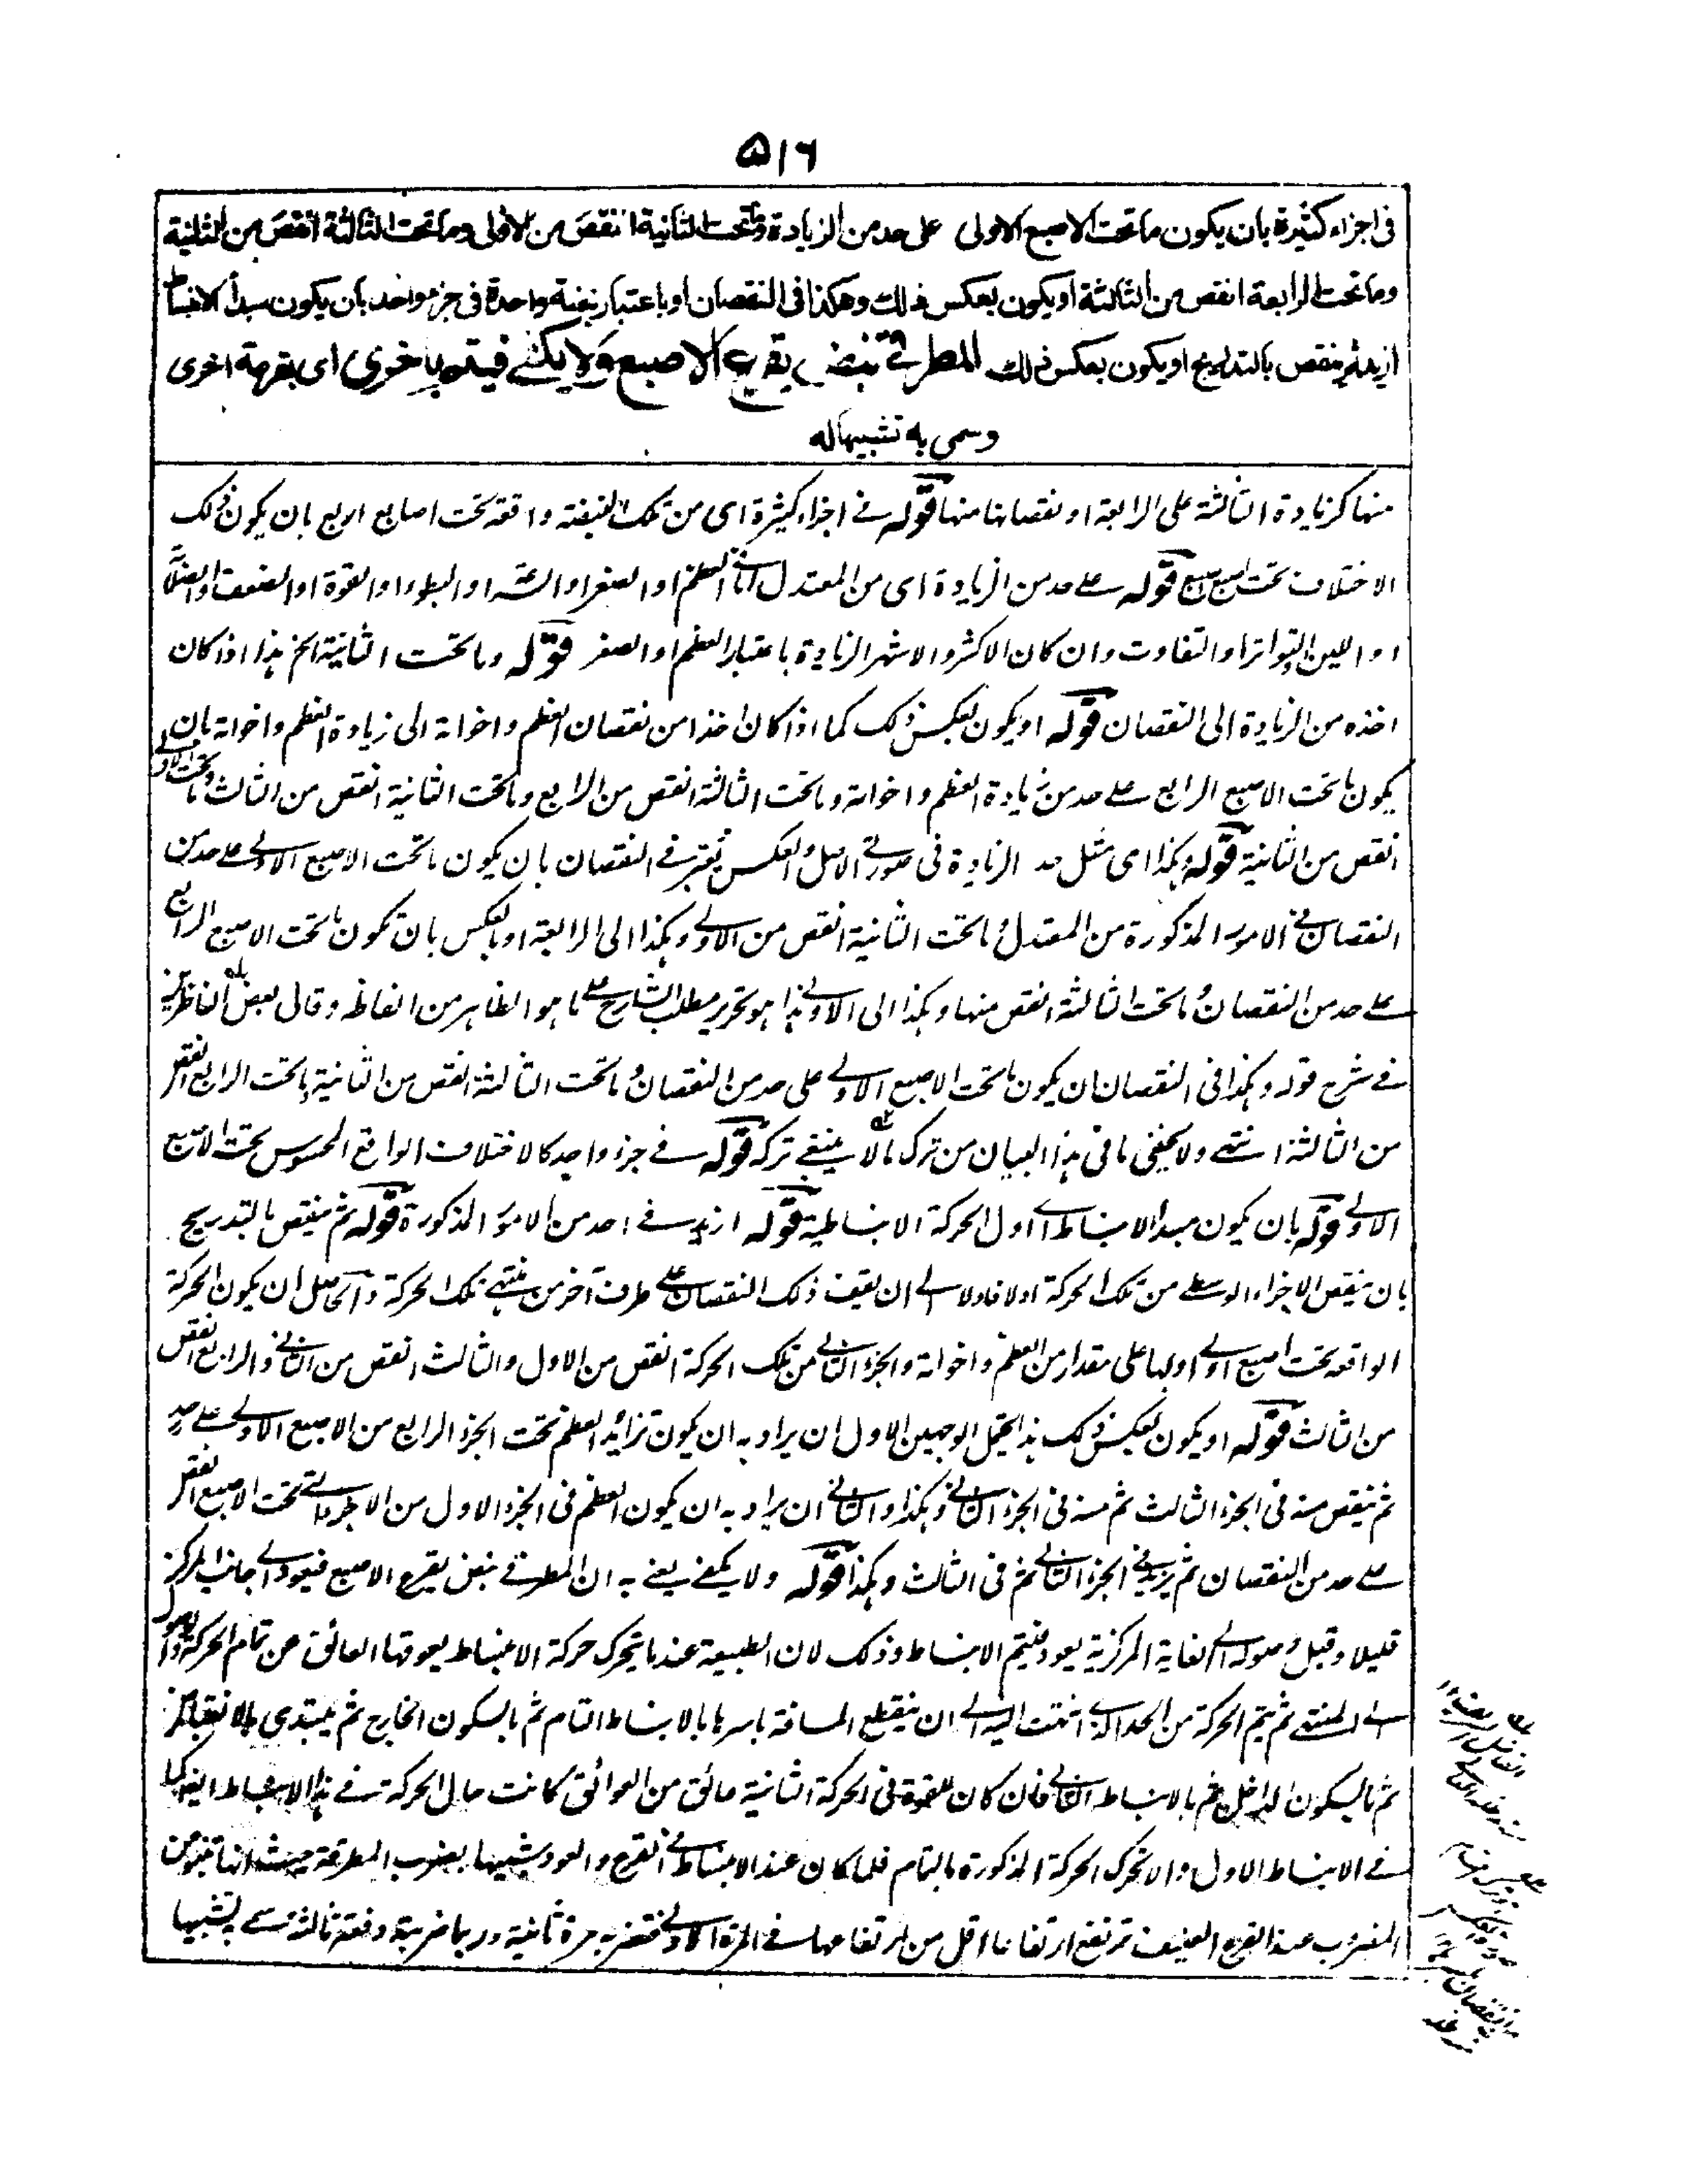 ۵۱۶
فى اجزاء كثيرة بان يكون ما تحت الاصبع الاولى على حد من الزيادة وما تحت الثانية انقص من الاولى وما تحت الثالثة انقص من الثانية
وما تحت الرابعة انقص من الثالثة او يكون بعكس ذلك وهكذا فى النقصان او باعتبار نبضة واحدة فى جزء واحد بان يكون مبدأ الانبساط
ازيد ثم ينقص بالتدريج او يكون بعكس ذلك المطرقى نبض يقرع الاصبع ولا يكتفى فيتم باخرى اى بقرعة اخرى
وسمى به تشبيها له
منها كزيادة الثالثة على الرابعة او نقصانها منها قوله فے اجزاء كثيرة اى من تلك النبضة واقعة تحت اصابع اربع بان يكون ذلك
الاختلاف تحت اصبع اصبع قوله علے حد من الزيادة اى من المعتدل اما فى العظم او الصغر او السرعة او البطوء او القوة او الضعف او الصلابة
او اللين او التواتر او التفاوت وان كان الاكثر والاشهر الزيادة باعتبار العظم او الصغر قوله وما تحت الثانية الخ هذا اذا كان
اخذه من الزيادة الى النقصان قوله او يكون بعكس ذلك كما اذا كان اخذا من نقصان العظم واخواته الى زيادة العظم واخواته بان
يكون ما تحت الاصبع الرابع علے حد من زيادة العظم واخواته وما تحت الثالثة انقص من الرابع وما تحت الثانية انقص من الثالث وما تحت الاولے
انقص من الثانية قوله وهكذا اى مثل حد الزيادة فى صورتے الاصل والعكس يعتبر فے النقصان بان يكون ما تحت الاصبع الاولے علے حد من
النقصان فے الامور المذكورة من المعتدل وما تحت الثانية انقص من الاولے وهكذا الى الرابعة او بالعكس بان تكون ما تحت الاصبع الرابع
علے حد من النقصان وما تحت الثالثة انقص منها وهكذا الى الاولے هذا هو تحرير مطلب الشارح علے ما هو الظاهر من الفاظه وقال بعض الناظرين
فے شرح قوله وهكذا فى النقصان ان يكون ما تحت الاصبع الاولے على حد من النقصان وما تحت الثالثة انقص من الثانية وما تحت الرابع انقص
من الثالثة انتهے ولا يخفى ما فى هذا البيان من ترك ما لا ينبغے تركه قوله فے جزء واحد كالاختلاف الواقع المحسوس تحت الاصبع
الاولے قوله بان يكون مبدا الانبساط اے اول الحركة الانبساطية قوله ازيد فے احد من الامور المذكورة قوله ثم ينقص بالتدريج
بان ينقص الاجزاء الوسطے من تلك الحركة اولا فاولا الے ان يقف ذلك النقصان علے طرف آخر من منتهے تلك الحركة والحاصل ان يكون الحركة
الواقعة تحت اصبع اولے اولها على مقدار من العظم واخواته والجزء الثانے من تلك الحركة انقص من الاول والثالث انقص من الثانے والرابع انقص
من الثالث قوله او يكون بعكس ذلك هذا يحتمل الوجهين الاول ان يراد به ان يكون تزائد العظم تحت الجزء الرابع من الاصبع الاولے علے حد
ثم ينقص منه فى الجزء الثالث ثم منه فى الجزء الثانے وهكذا والثانے ان يراد به ان يكون العظم فى الجزء الاول من الاجزاء التے تحت الاصبع انقص
علے حد من النقصان ثم يزيد فے الجزء الثانے ثم فى الثالث وهكذا قوله ولا يكتفے يعنے به ان المطرقے نبض يقرع الاصبع فيعود الے جانب المركز
قليلا وقبل وصوله الے الغاية المركزية يعود فيتم الانبساط وذلك لان الطبيعة عند ما يتحرك حركة الانبساط يعوقها العائق عن تمام الحركة والوصول
الے المنتهے ثم يتم الحركة من الحد الذے انتهت اليه الے ان ينقطع المسافة باسرها بالانبساط التام ثم بالسكون الخارج ثم يبتدى بالانقباض
ثم بالسكون الداخل ثم بالانبساط الثانے فان كان للقوة فى الحركة الثانية عائق من العوائق كانت حال الحركة فے هذا الانبساط ايضا كما
فے الانبساط الاول والا تحرك الحركة المذكورة بالتمام فلما كان عند الانبساط فے القرع والعود شبيها بضرب المطرقة حيث انها تنبو عن
المضروب عند القرع العنيف ترتفع ارتفاعا اقل من ارتفاعها فے المرة الاولے فتضربه مرة ثانية وربما ضربته دفعة ثالثة سے تشبيها